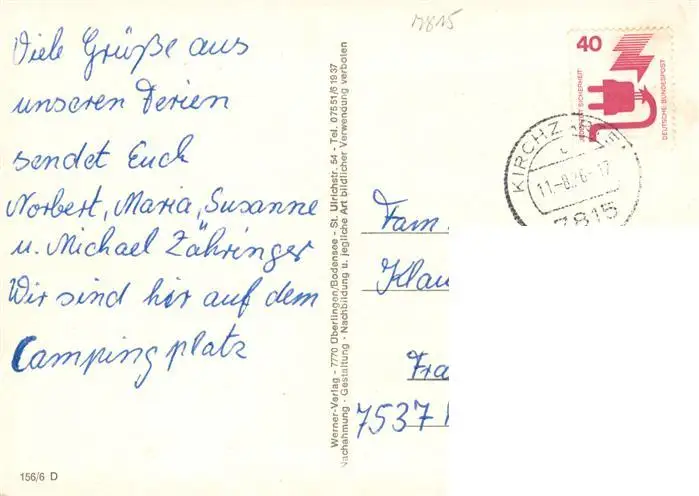 Viele Grüße aus
unseren Ferien
sendet Euch
Norbert, Maria, Susanne
u. Michael Zähringer
Wir sind hir auf dem
Campingplatz
156/6 D
Werner-Verlag - 7770 Überlingen/Bodensee - St. Ulrichstr. 54 - Tel. 07551/61937
Nachahmung - Gestaltung - Nachbildung u. jegliche Art bildlicher Verwendung verboten
7815
40
JEDERZEIT SICHERHEIT
DEUTSCHE BUNDESPOST
KIRCHZ
11.-8.76-17
7815
Fam
Klau
Fra
7537